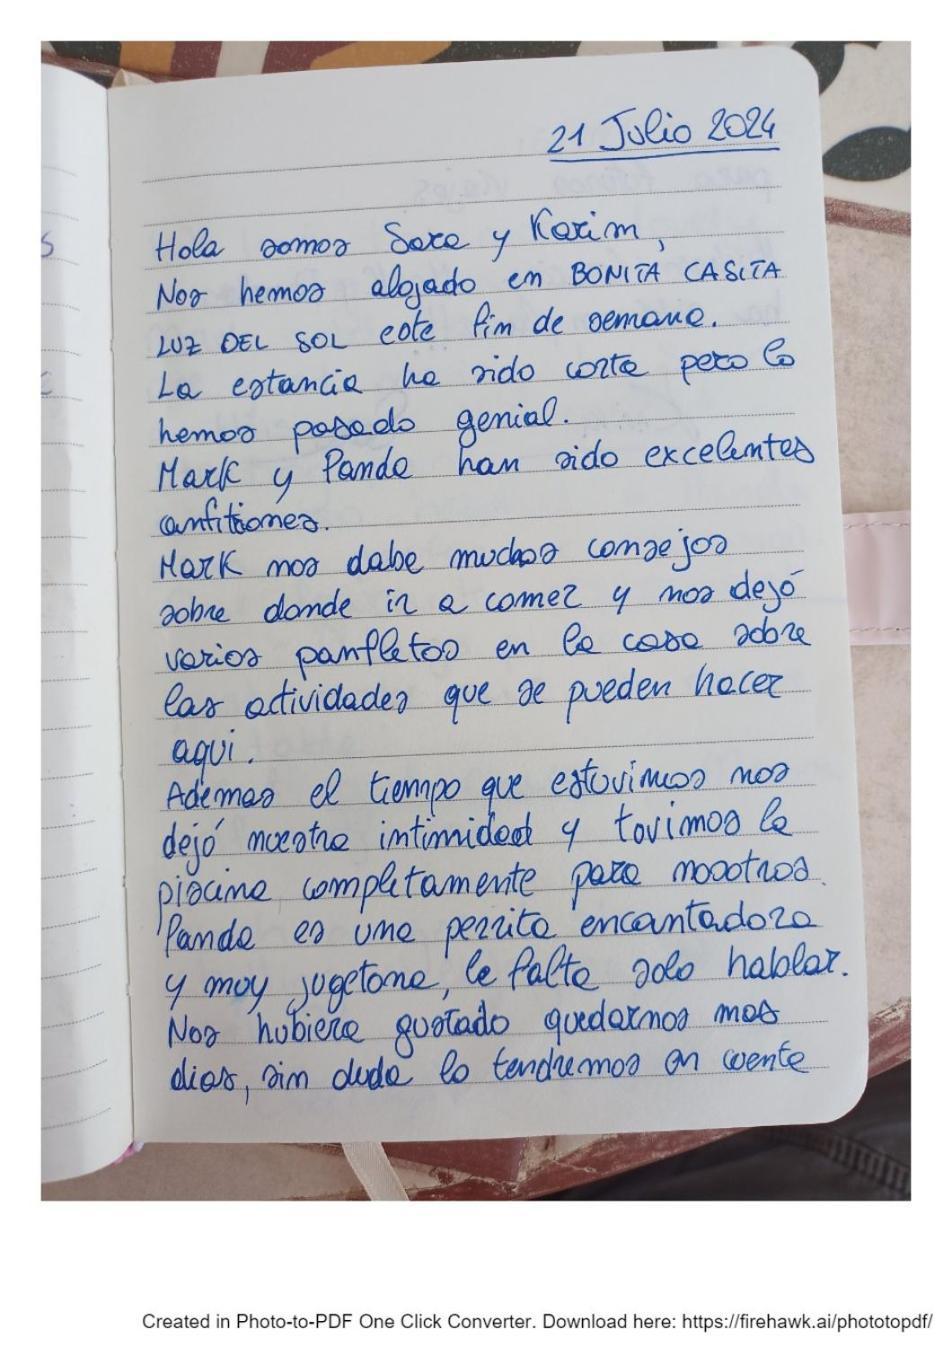 21 Julio 2024
Hola somos Sara y Karim,
Nos hemos alojado en BONITA CASITA
LUZ DEL SOL este fin de semana.
La estancia ha sido corta pero lo
hemos pasado genial.
Mark y Panda han sido excelentes
anfitriones.
Mark nos daba muchos consejos
sobre donde ir a comer y nos dejó
varios panfletos en la casa sobre
las actividades que se pueden hacer
aqui.
Ademas el tiempo que estovimos nos
dejó nuestra intimidad y tovimos la
piscina completamente para nosotros.
Panda es una perrita encantadora
y moy jugetona, le falta solo hablar.
Nos hubiera gustado quedarnos mas
dias, sin duda lo tendremos en cuenta
Created in Photo-to-PDF One Click Converter. Download here: https://firehawk.ai/phototopdf/